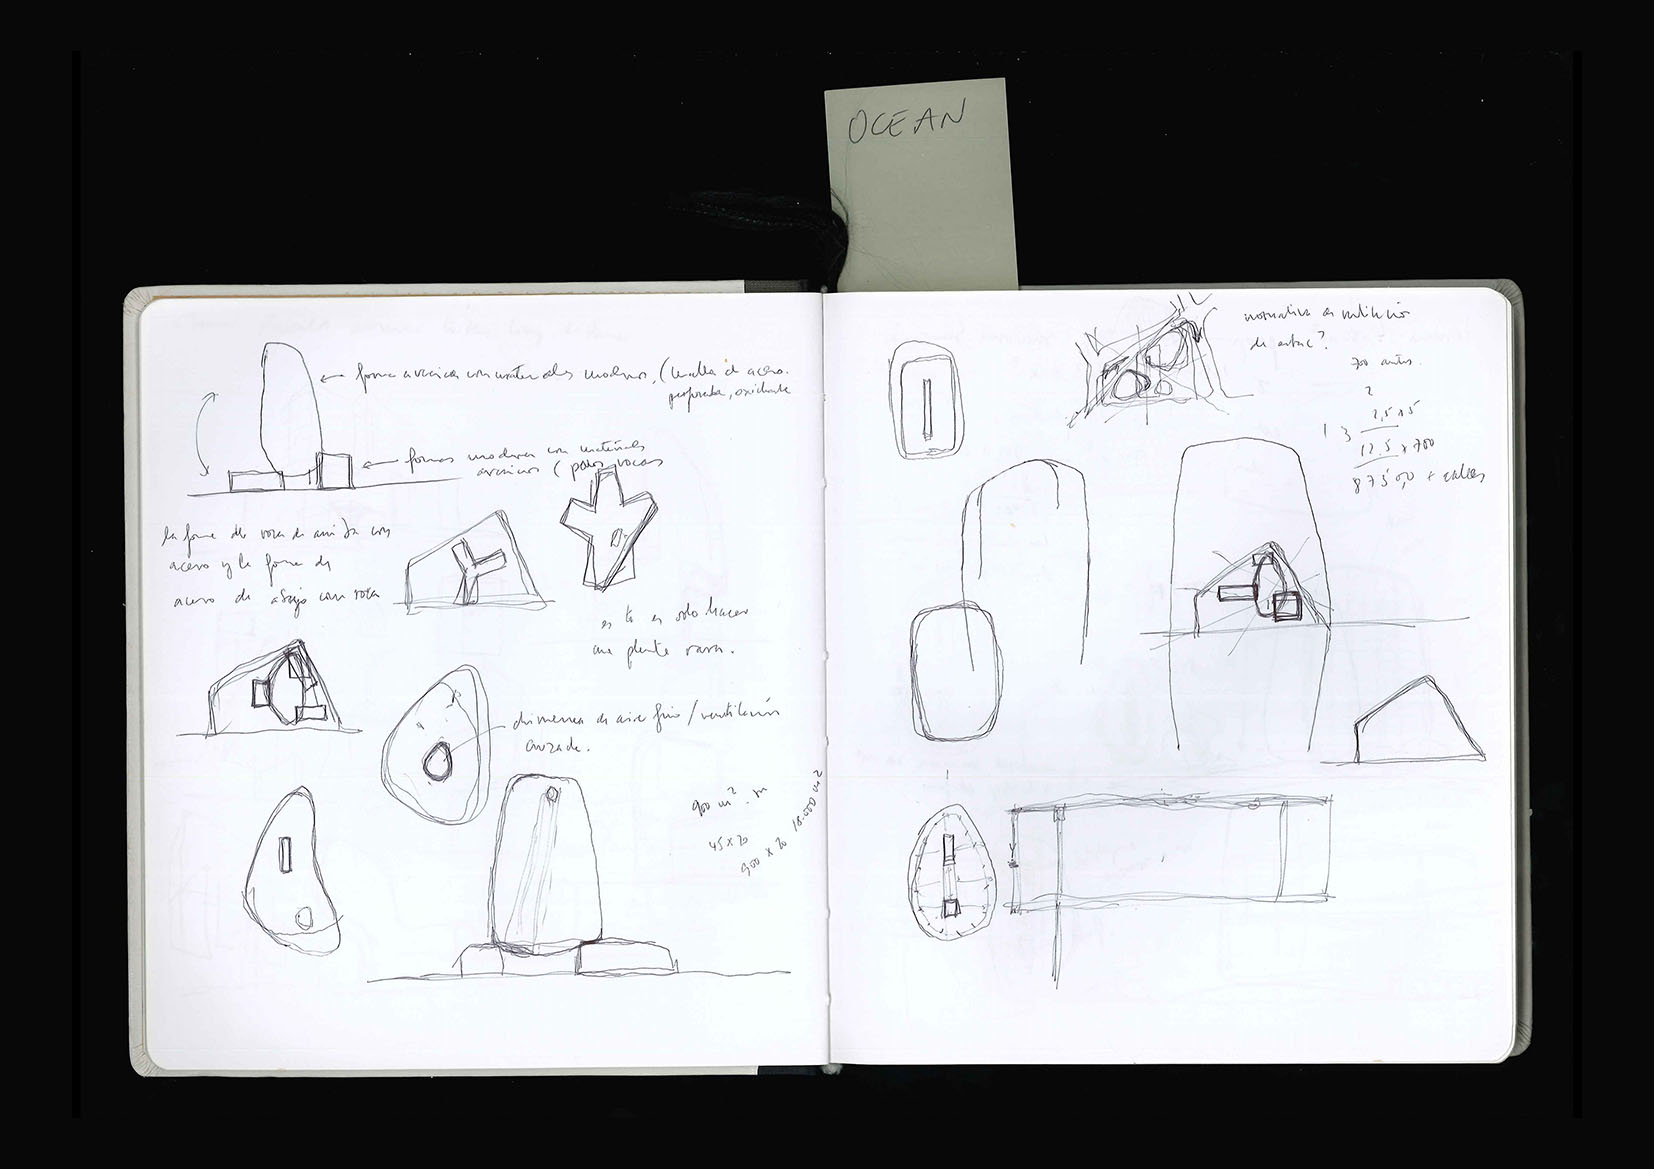 OCEAN
forma arcaica con materiales modernos, (malla de acero
perforada, oxidante
formas modernas con materiales
arcaicos (patos rocas
la forma de roca de arriba con
acero y la forma de
acero de abajo con roca
esto es solo hacer
una planta rara.
chimenea de aire frio / ventilación
cruzada.
900 m².
45 x 20
900 x 20 18.000 m2
normativa de ventilación
de
700
2
2,5 x 5
12.5 x 700
8750,0 + calles